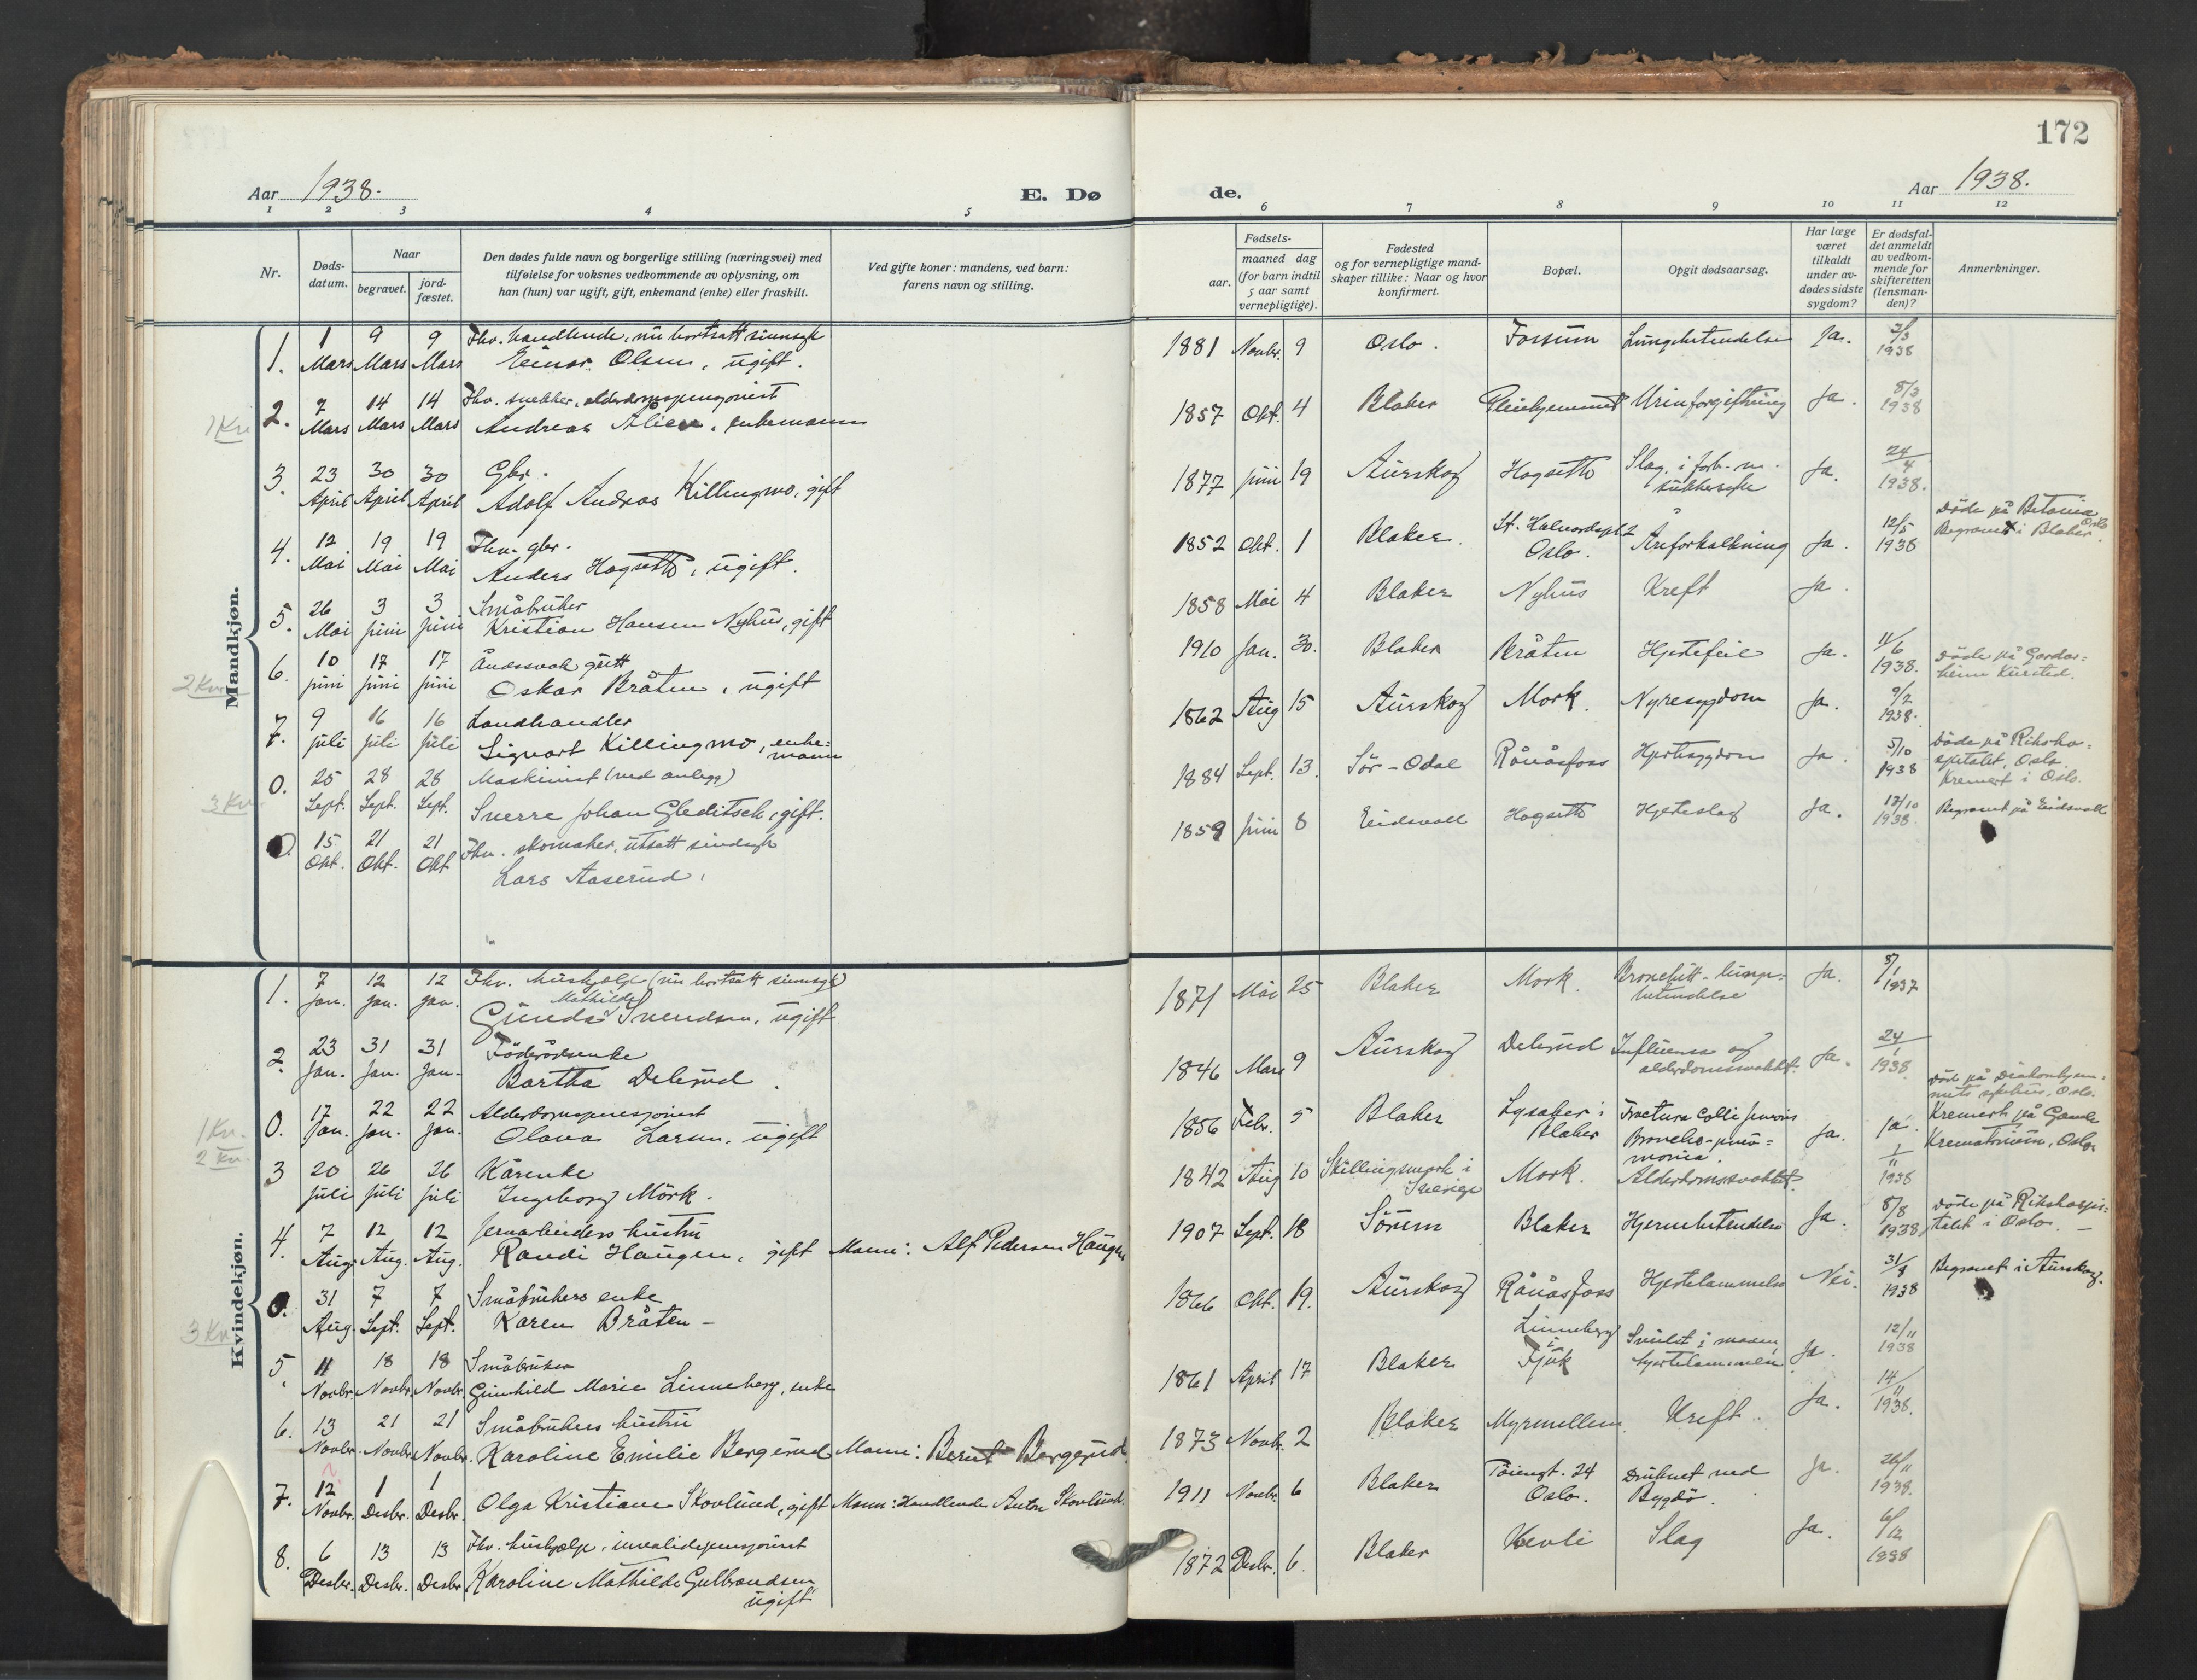 172
Aar 1938.
E. Dø
de.
Aar 1938.
1 2 3 4 5 6 7 8 9 10 11 12
Nr.
Døds-
datum.
Naar
begravet.
jord-
fæstet.
Den dødes fulde navn og borgerlige stilling (næringsvei) med
tilføielse for voksnes vedkommende av oplysning, om
han (hun) var ugift, gift, enkemand (enke) eller fraskilt.
Ved gifte koner: mandens, ved barn:
farens navn og stilling.
Fødsels-
aar.
maaned dag
(for barn indtil
5 aar samt
vernepligtige).
Fødested
og for vernepligtige mand-
skaper tillike: Naar og hvor
konfirmert.
Bopæl.
Opgit dødsaarsag.
Har læge
været
tilkaldt
under av-
dødes sidste
sygdom?
Er dødsfal-
det anmeldt
av vedkom-
mende for
skifteretten
(lensman-
den)?
Anmerkninger.
Mandkjøn.
1. 1 Mars 9 Mars 9 Mars Fhv. handlende, nu bortsatt sinnsyk
Einar Olsen, ugift. 1881 Novbr. 9 Oslo. Fossum Lungebetendelse Ja. 2/3 1938
1 Kv.
2. 7 Mars 14 Mars 14 Mars Fhv. snekker, alderdomspensjonist
Andreas Alien, enkemann 1857 Okt. 4 Blaker Pleiehjemmet Urinforgiftning Ja. 8/3 1938
3. 23 April 30 April 30 April Gbr.
Adolf Andreas Killingmo, gift 1877 Juni 19 Aurskog Hogseth Slag, i forb. m.
sukkersyke Ja. 24/4 1938.
4. 12 Mai 19 Mai 19 Mai Fhv. gbr.
Anders Hogseth, ugift. 1852 Okt. 1 Blaker. St. Halvardspl. 2
Oslo. Åreforkalkning Ja. 12/5 1938 Døde på Betania
Oslo
Begravet i Blaker.
5. 26 Mai 3 Juni 3 Juni Småbruker
Kristian Hansen Nyhus, gift 1858 Mai 4 Blaker Nyhus Kreft Ja.
2 Kv.
6. 10 Juni 17 Juni 17 Juni Åndssvak gutt
Oskar Bråten, ugift 1910 Jan. 30. Blaker Bråten Hjertefeil Ja. 11/6 1938. Døde på Gardar-
heim Kursted.
7. 9 Juli 16 Juli 16 Juli Landhandler
Sigvart Killingmo, enke-
mann 1862 Aug 15 Aurskog Mork. Nyresygdom Ja. 9/7 1938.
3 Kv.
0. 25 Sept. 28 Sept. 28 Sept. Maskinist (ved anlegg)
Sverre Johan Gleditsch, gift. 1884 Sept. 13. Sør-Odal Rånåsfoss Hjertesygdom Ja. 5/10 1938 Døde på Riksho-
spitalet, Oslo.
Kremert i Oslo.
0. 15 Okt. 21 Okt. 21 Okt Fhv. skomaker, utsatt sindsyk
Lars Aaserud. 1859 Juni 8 Eidsvoll Hogseth Hjerteslag Ja. 17/10 1938. Begravet på Eidsvoll
Kvindekjøn.
1. 7 Jan. 12 Jan. 12 Jan. Fhv. hushjelp (nu bortsatt sinnsyk)
Mathilde
Gunda Svendsen, ugift 1871 Mai 25 Blaker Mork. Bronchitt-lunge-
betendelse Ja. 8/1 1937
2. 23 Jan. 31 Jan. 31 Jan. Føderådsenke
Bartha Delerud. 1846 Mars 9 Aurskog Delerud Influensa og
alderdomssvakhet. Ja. 24/1 1938
1 Kv.
0. 17 Jan. 22 Jan. 22 Jan. Alderdomspensjonist
Olava Larsen, ugift 1856 Febr. 5 Blaker Lysaker i
Blaker Fractura colli femoris
Broncho-pneu-
monia. Ja. ja. Død på Diakonhjem-
mets sykehus, Oslo.
Kremert på Gamle
Krematorium, Oslo.
2 Kv.
3 20 Juli 26 Juli 26 Juli Kårenke
Ingeborg Mörk. 1842 Aug 10 Skillingsmark i
Sverige Mork. Alderdomssvakhet. 1938
4. 7 Aug. 12 Aug. 12 Aug. Jernarbeiders hustru
Randi Haugen, gift Mann: Alf Pedersen Haugen 1907 Sept. 18 Sørum Blaker Hjernebetendelse Ja. 8/8 1938 Døde på Rikshospi-
talet i Oslo.
0. 31 Aug. 7 Sept. 7 Sept. Småbrukers enke
Karen Bråten 1866 Okt. 19. Aurskog Rånåsfoss Hjertelammelse Nei. 31/8 1938 Begravet i Aurskog.
3 Kv.
5. 11 Novbr. 18 Novbr. 18 Novbr. Småbruker
Gunhild Marie Linneberg, enke 1861 April 17 Blaker Linneberg
i
Fjuk Svulst i maven,
hjertelammelse Ja. 12/11 1938
6. 13 Novbr. 21 Novbr. 21 Novbr. Småbrukers hustru
Karoline Emilie Bergerud Mann: Bernt Bergerud. 1873 Novbr. 2 Blaker Myrmellem Kreft. Ja. 14/11 1938.
7. 12 Novbr. 1 Desbr. 1 Desbr. Olga Kristiane Skovlund, gift Mann: Handlende Anton Skovlund. 1911 Novbr. 6 Blaker Tøiengt. 24
Oslo. Druknet ved
Bygdø. Ja. 26/11 1938.
8. 6 Desbr. 13 Desbr. 13 Desbr Fhv. hushjelp, invalidepensjonist
Karoline Mathilde Gulbrandsen,
ugift 1872 Desbr. 6. Blaker Kevli Slag Ja. 6/12 1938